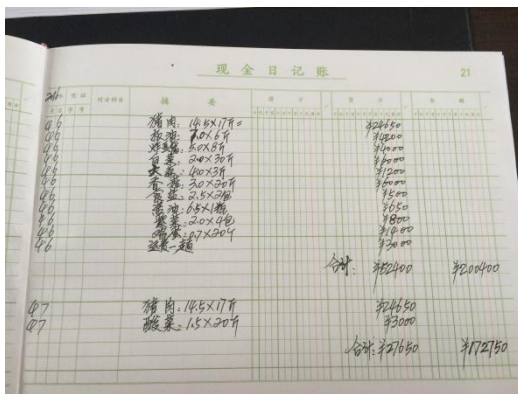 现金日记账 21
凭证 对方科目 摘要 借方 贷方 余额
4 6 猪肉: 14.5×17斤= ¥24650
4 6 板油: 7.0×6斤 ¥4200
4 6 5.0×8斤 ¥4000
4 6 白菜: 2.0×30斤 ¥6000
4 6 4.0×3斤 ¥1200
4 6 3.0×20斤 ¥6000
4 6 食盐: 2.5×2包 ¥500
4 6 酱油: 6.5×1瓶 ¥650
4 6 紫菜: 2.0×4包 ¥800
4 6 鸡蛋: 0.7×20个 ¥1400
4 6 ¥3000
合计: ¥52400 ¥200400
4 7 猪肉: 14.5×17斤 ¥24650
4 7 酸菜: 1.5×20斤 ¥3000
合计: ¥27650 ¥172750